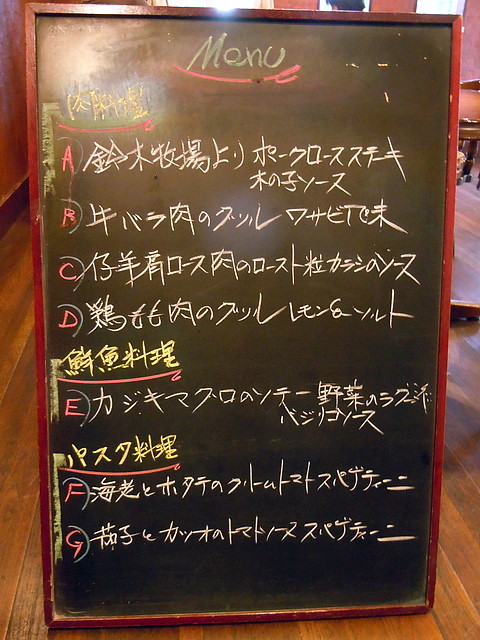 Menu
肉料理
A 鈴木牧場より ポークロースステーキ
木の子ソース
B 牛バラ肉のグリル ワサビ風味
C 仔羊肩ロース肉のロースト 粒カラシのソース
D 鶏もも肉のグリル レモン&ソルト
鮮魚料理
E カジキマグロのソテー 野菜のラグー添
バジリコソース
パスタ料理
F 海老とホタテのクリームトマトスパゲティーニ
G 茄子とカツオのトマトソーススパゲティーニ